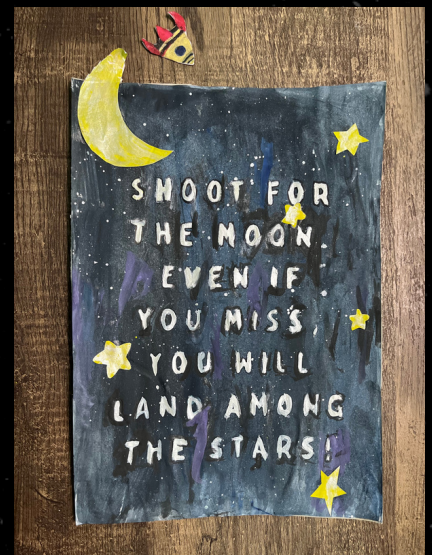 SHOOT FOR
THE MOON
EVEN IF
YOU MISS,
YOU WILL
LAND AMONG
THE STARS!